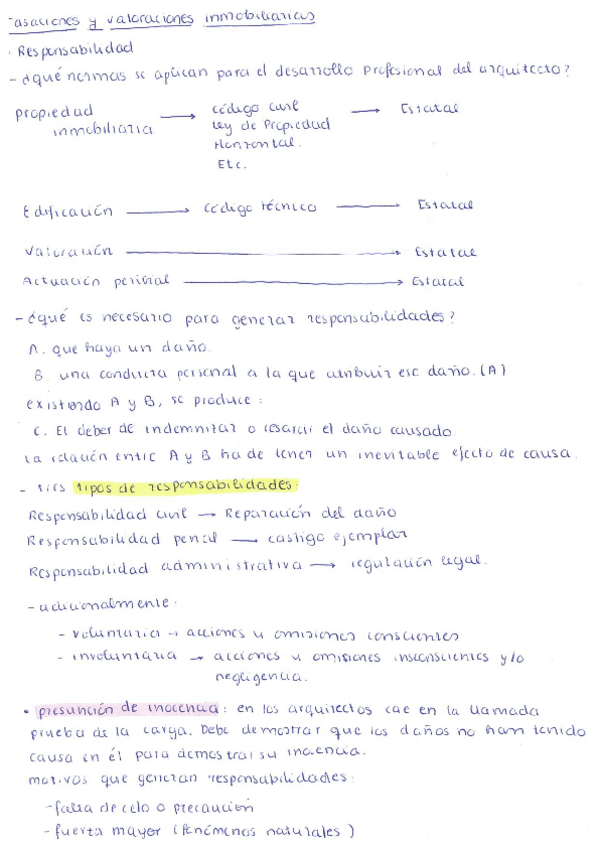 Tasaciones y valoraciones inmobiliarias
· Responsabilidad
- ¿qué normas se aplican para el desarrollo profesional del arquitecto?
propiedad inmobiliaria → código civil → Estatal
Ley de Propiedad
Horizontal.
Etc.
Edificación → código técnico → Estatal
Valoración → Estatal
Actuación pericial → Estatal
- ¿qué es necesario para generar responsabilidades?
A. que haya un daño.
B. una conducta personal a la que atribuir ese daño. (A)
existiendo A y B, se produce:
C. El deber de indemnizar o resarcir el daño causado
la relación entre A y B ha de tener un inevitable efecto de causa.
- tres tipos de responsabilidades:
Responsabilidad civil → Reparación del daño
Responsabilidad penal → castigo ejemplar
Responsabilidad administrativa → regulación legal.
- adicionalmente:
- voluntaria → acciones u omisiones conscientes
- involuntaria → acciones u omisiones insconscientes y/o
negligencia.
· presunción de inocencia: en los arquitectos cae en la llamada
prueba de la carga. Debe demostrar que los daños no han tenido
causa en él para demostrar su inocencia.
motivos que generan responsabilidades:
- falta de celo o precaución
- fuerza mayor (fenómenos naturales)